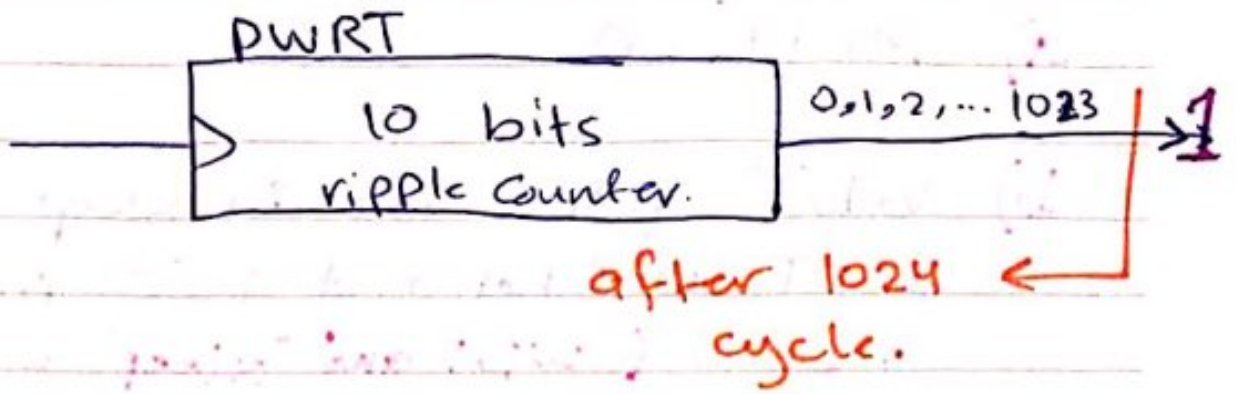 PWRT
10 bits
ripple counter.
0,1,2,... 1023
1
after 1024
cycle.